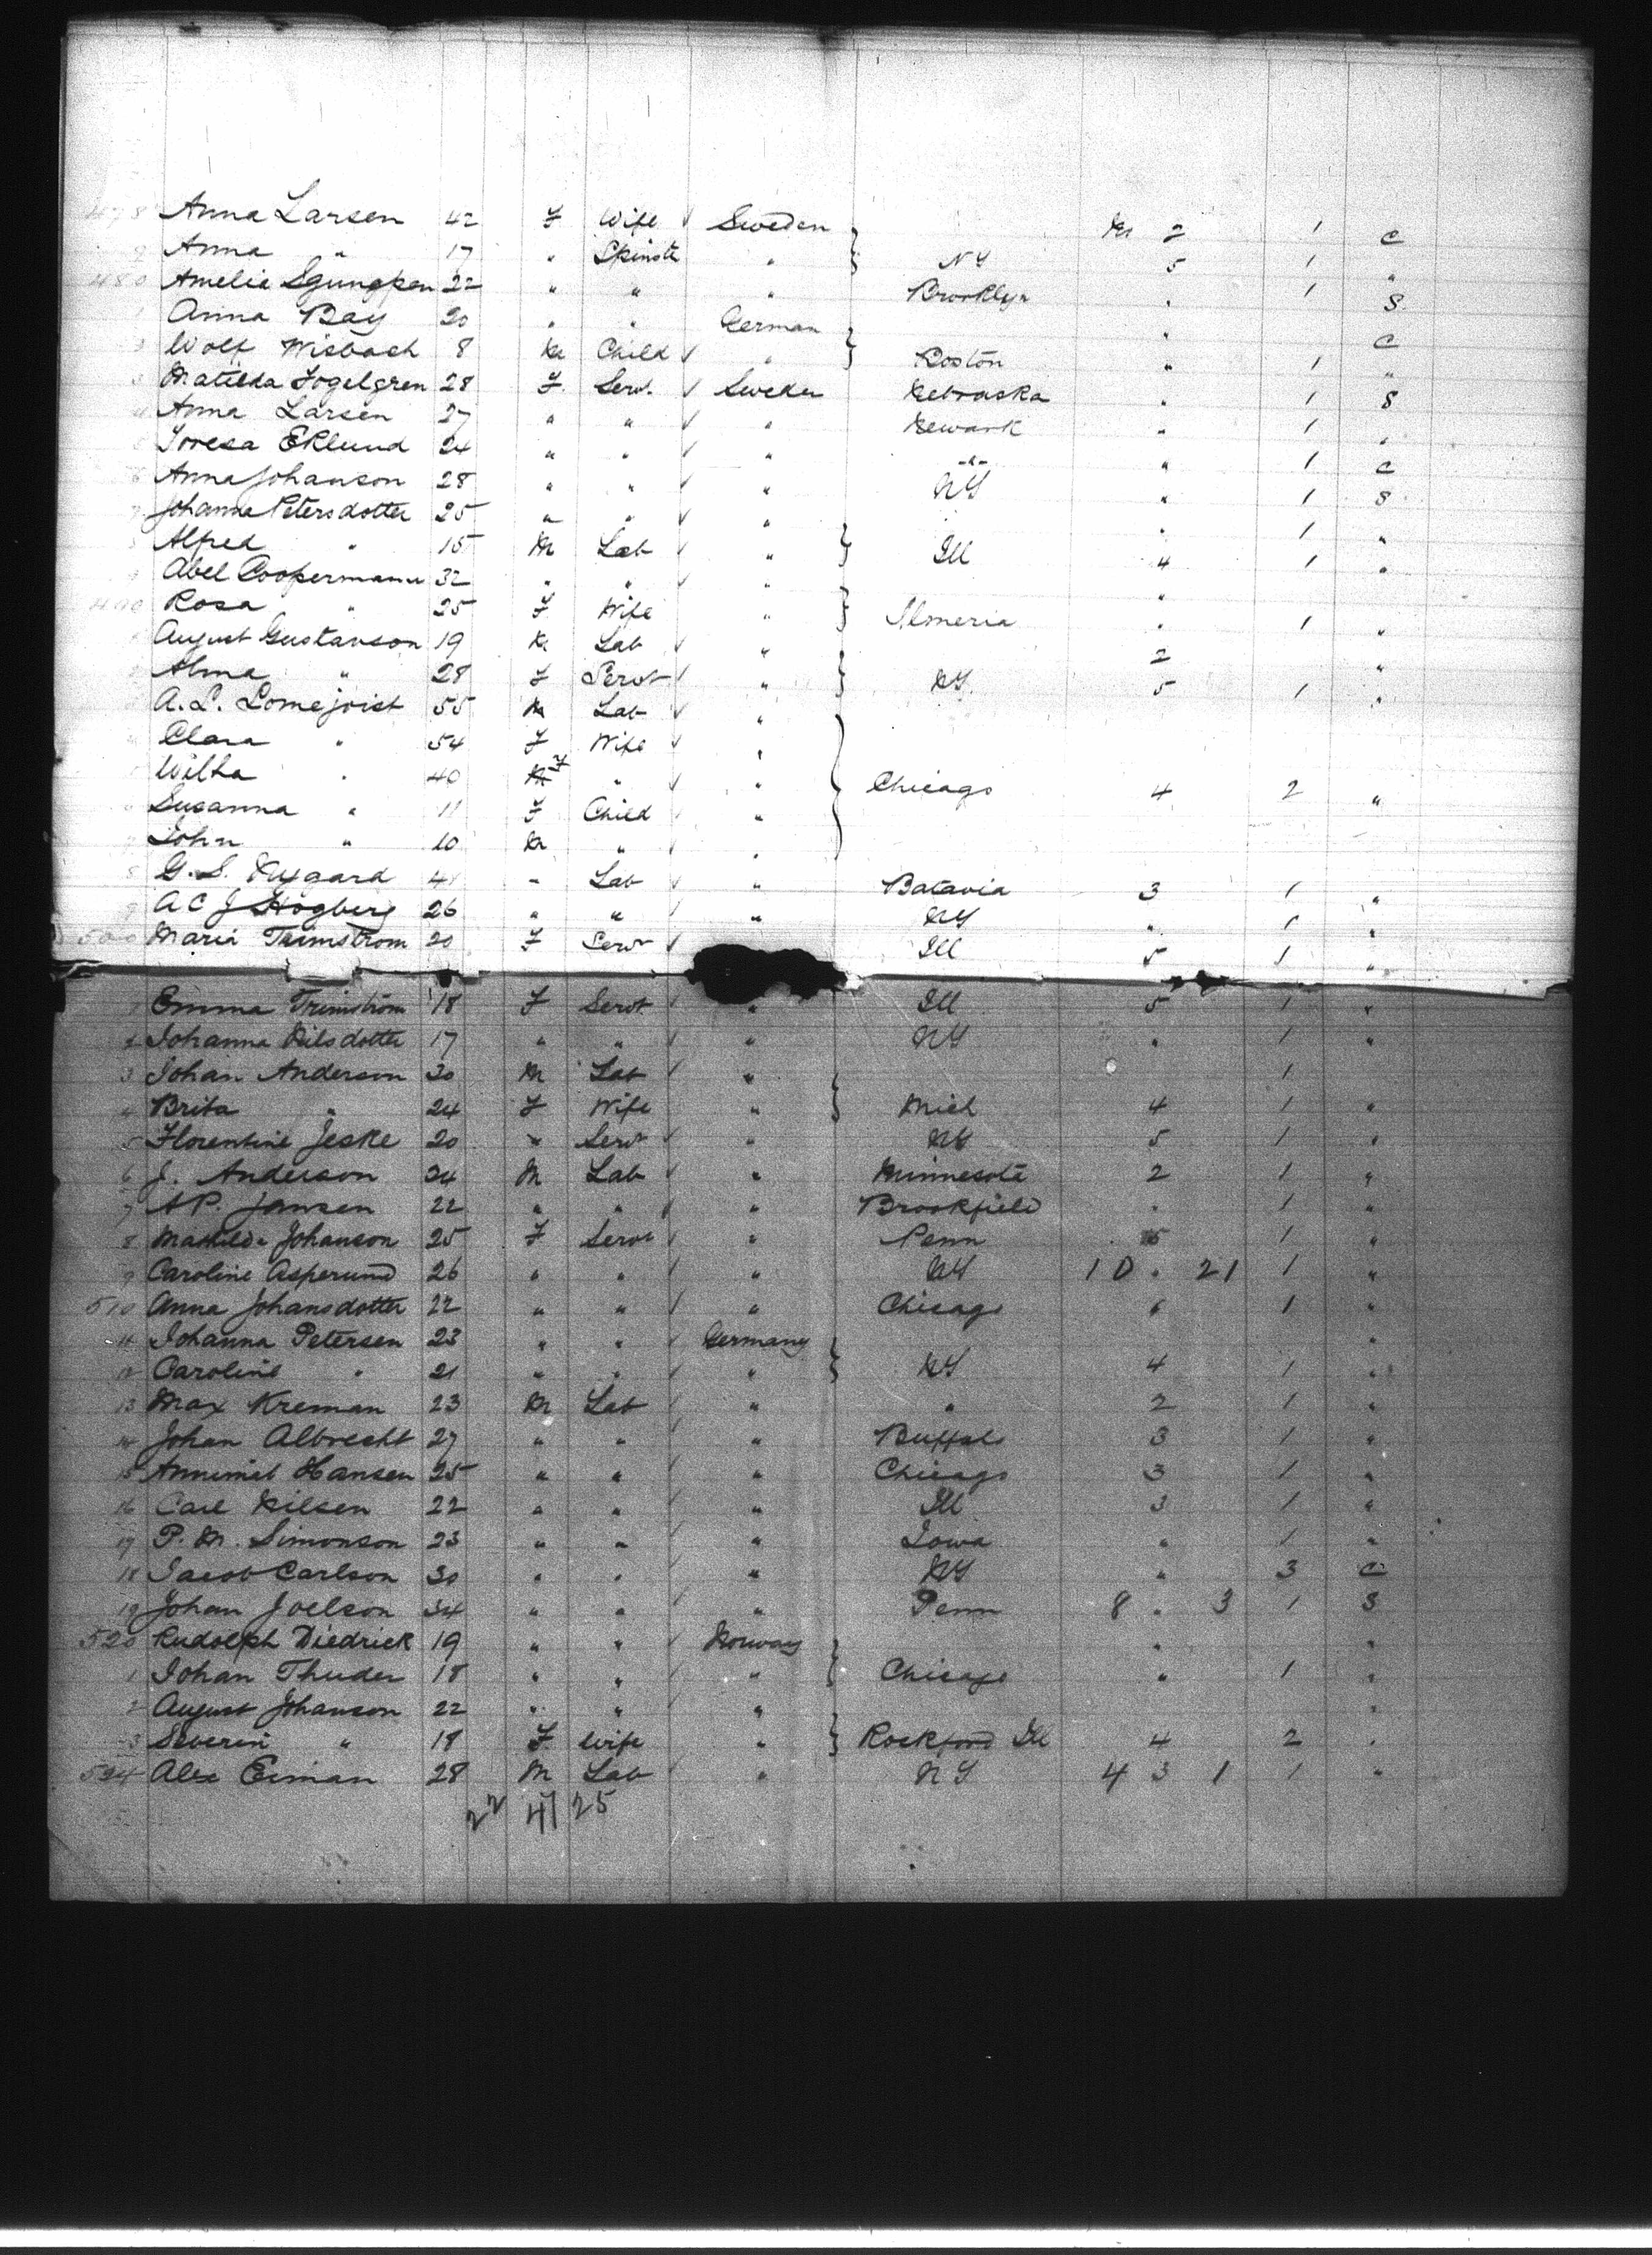 478 Anna Larsen 42 F Wife √ Sweden } No 2 1 C
9 Anna " 17 " Spinste " } NY 5 1 "
480 Amelia 22 " " " Brooklyn " 1 S.
1 Anna Bay 20 " " German } " C
Wolf Wisbach 8 M Child √ " } Boston " 1 "
3 Matilda Fogelgren 28 F. Servt. √ Sweden Nebraska " 1 S
4 Anna Larsen 27 " " √ " Newark " 1 "
Teresa Eklund 24 " " √ " " " 1 C
6 Anna Johanson 28 " " √ " NY " 1 S.
7 Johanna Petersdotter 25 " " √ " } " 1 "
Alfred " 15 M Lab √ " } Ill 4 1 "
9 Abel Coopermann 32 " " √ " } "
490 Rosa " 25 F Wife " } Almeria " 1 "
August Gustavson 19 M Lab √ " } 2 "
Alma " 28 F Servt √ " } NY. 5 1 "
A. L. 55 M Lab √ " }
Clara " 54 F Wife √ " }
" 40 M F " √ " } Chicago 4 2 "
Susanna " 11 F Child √ " }
John " 10 M " √ " }
8 G. S. Nygard 41 " Lab √ " Batavia 3 1 "
9 A C J Hogberg 26 " " √ " NY " 1 "
500 Maria 20 F Servt √ Ill 5 1 "
1 Emma 18 F Servt √ " Ill 5 1 "
2 Johanna Nilsdotter 17 " " √ " NY " 1 "
3 Johan Anderson 30 M Lab √ " } 1
4 Brita " 24 F Wife " } Mich 4 1 "
5 Florentine Jeske 20 " Servt √ " NY 5 1 "
6 J. Anderson 24 M Lab √ " Minnesota 2 1 "
7 A P. Jansen 22 " " √ " Brookfield " 1 "
8 Mathilda Johanson 25 F Servt " Penn 5 1 "
9 Caroline Asperund 26 " " √ " NY 10 " 21 1 "
510 Anna Johansdotter 22 " " √ " Chicago " 1 "
11 Johanna Petersen 23 " " √ Germany } "
12 Caroline " 21 " " √ " } NY 4 1 "
13 Max Kreman 23 M Lab √ " " 2 1 "
14 Johan Albrecht 27 " " √ " Buffalo 3 1 "
15 Hansen 25 " " √ " Chicago 3 1 "
16 Carl Nilsen 22 " " √ " Ill 3 1 "
17 P. M. Simonson 23 " " √ " Iowa " 1 "
18 Jacob Carlson 30 " " √ " NY " 3 C
19 Johan Joelson 34 " " √ " Penn 8 " 3 1 S
520 Rudolph Diedrick 19 " " √ Norway } " "
1 Johan Thuder 18 " " √ " } Chicago " 1 "
2 August Johanson 22 " " √ " } "
3 Severin " 18 F. Wife " } Rockford Ill 4 2 "
524 Alex Eiman 28 M Lab √ " NY 4 3 1 1 "
22 47 25